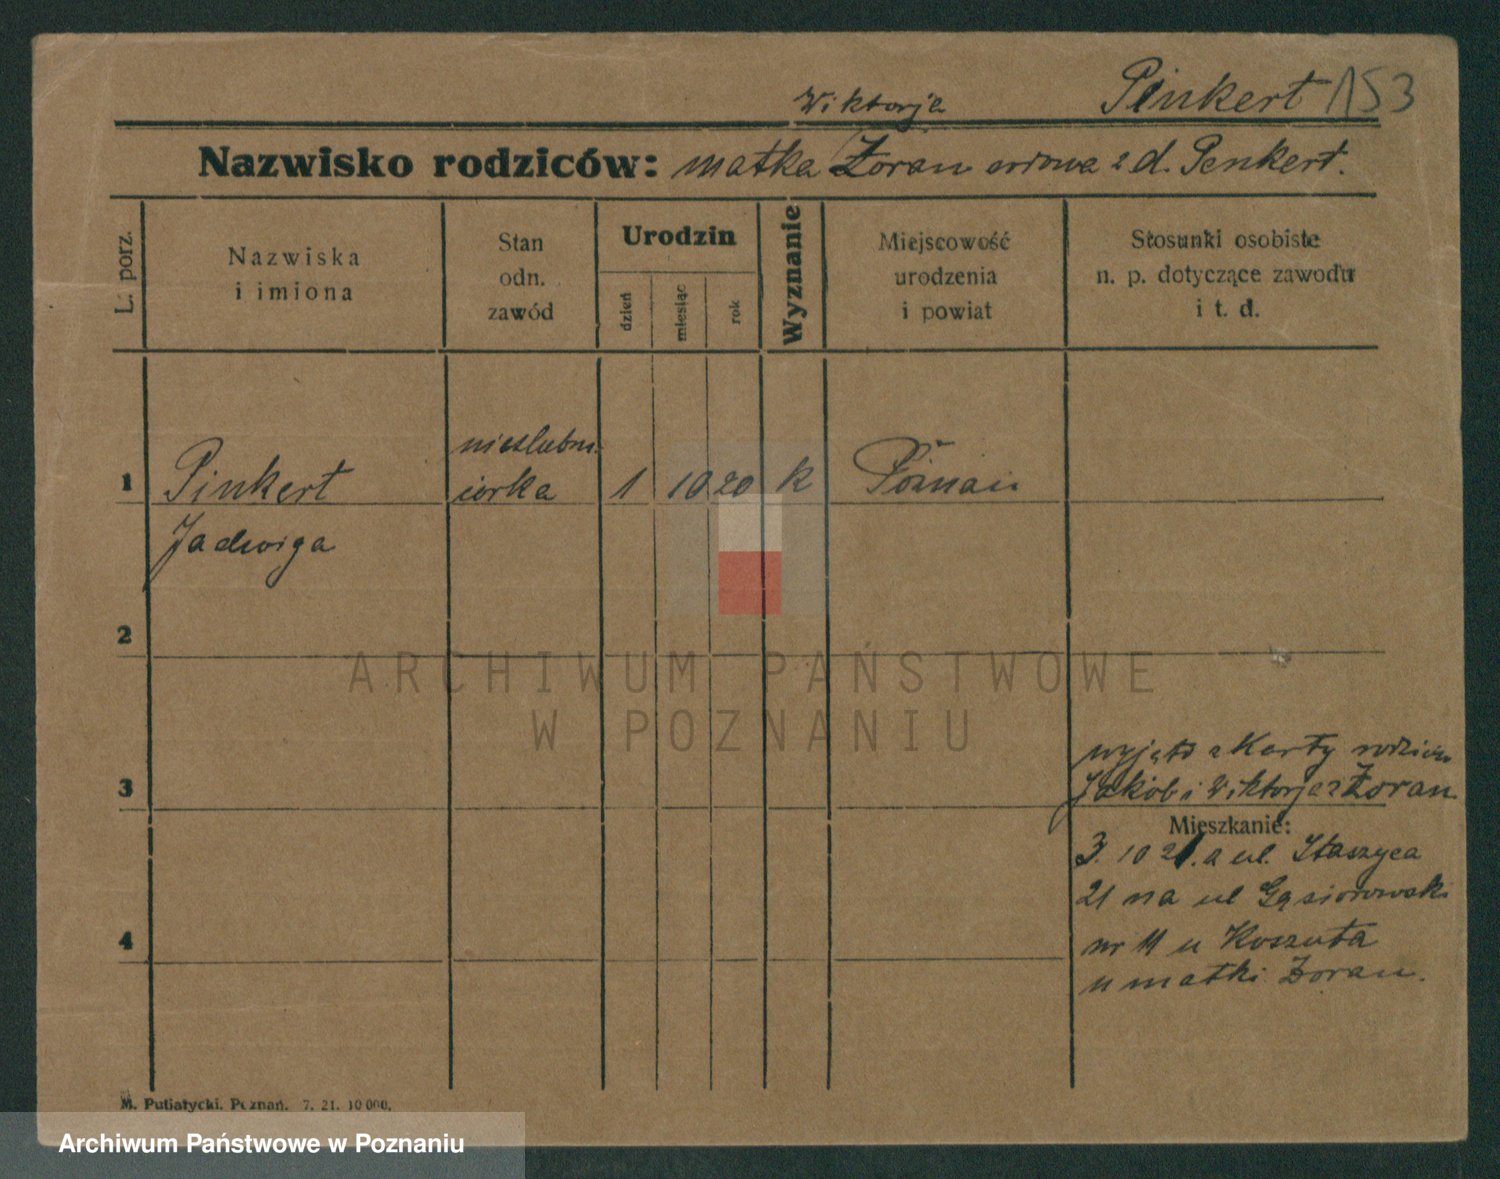 Pinkert 153
Wiktorja
Nazwisko rodziców: matka Żoran wdowa z d. Penkert.
L. porz.
Nazwiska
i imiona
Stan
odn.
zawód
Urodzin
dzień
miesiąc
rok
Wyznanie
Miejscowość
urodzenia
i powiat
Stosunki osobiste
n. p. dotyczące zawodu
i t. d.
1 Pinkert
Jadwiga
nieślubna
córka
1 10 20 k Poznań
2
3
4
wyjęto z Karty rodziców
Jakób i Wiktorja Żoran
Mieszkanie:
3. 10 21. a ul. Staszyca
21 na ul Gąsiorowski
nr 11 u Koszuta
u matki Żoran.
M. Putiatycki. Poznań. 7. 21. 10 000.
ARCHIWUM PAŃSTWOWE
W POZNANIU
Archiwum Państwowe w Poznaniu